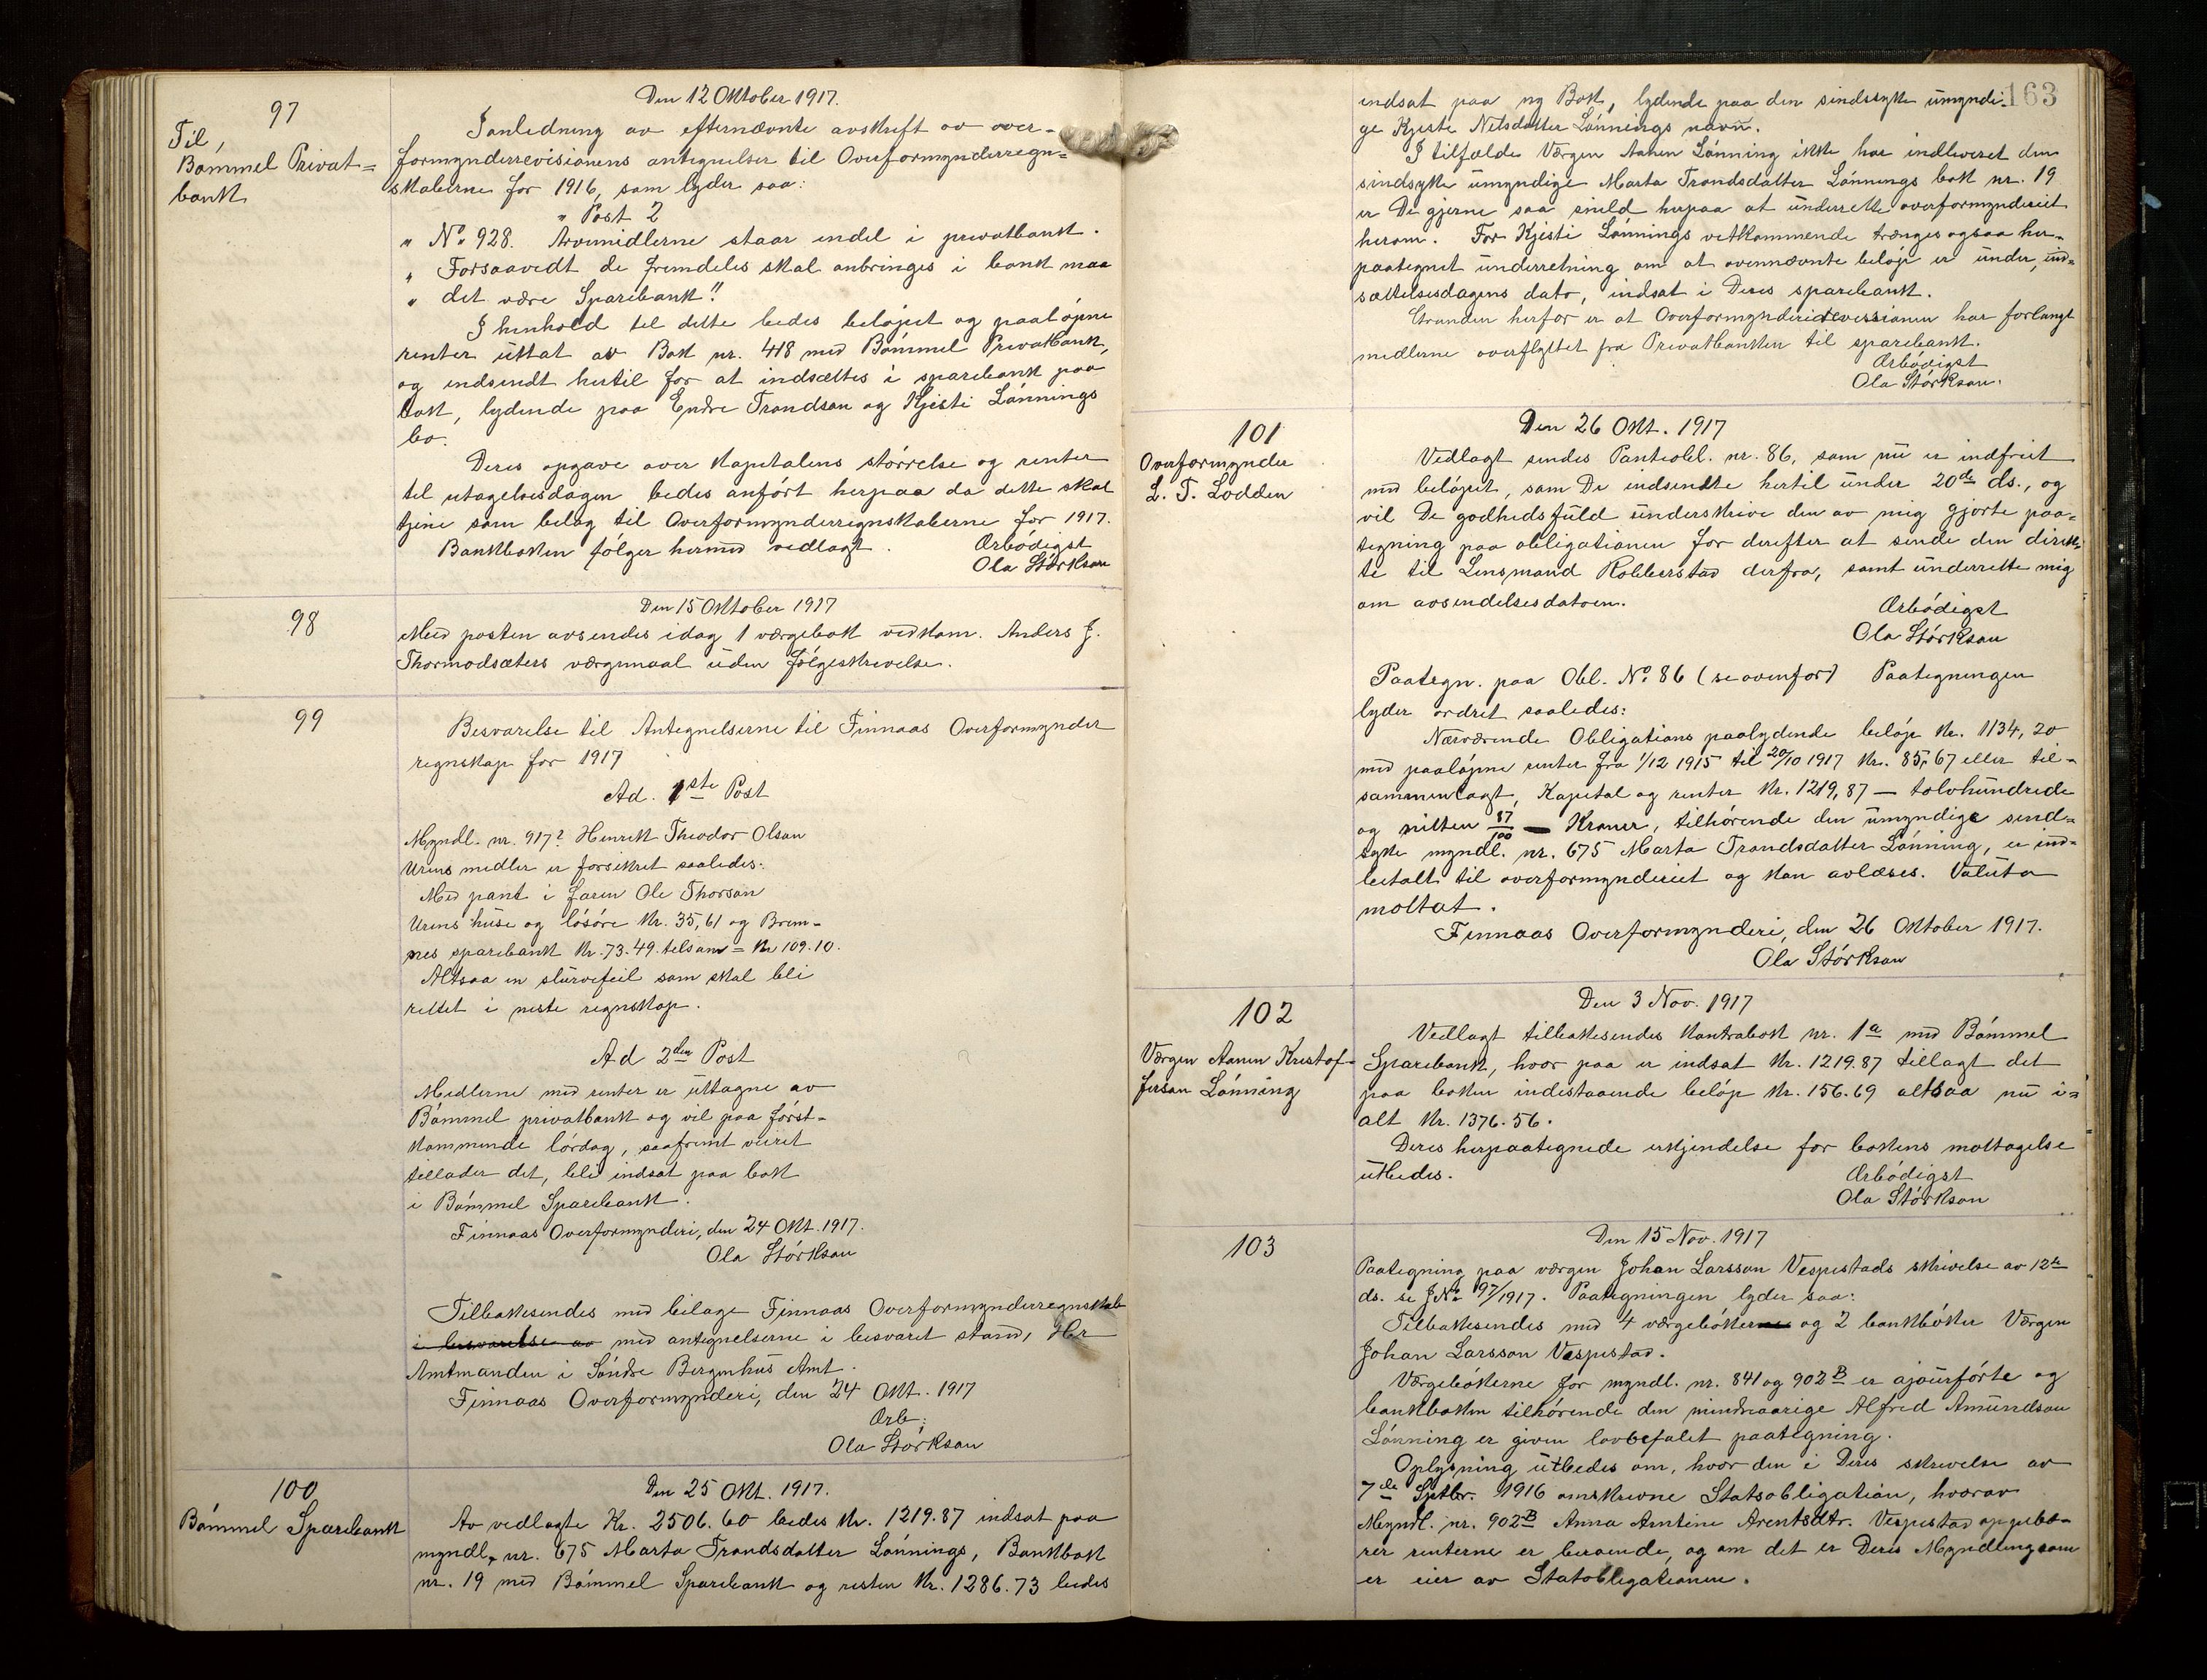 97
Til,
Bømmel Privat=
bank
Den 12 Oktober 1917.
I anledning av efternævnte avskrift av over-
formynderrevisionens antegnelser til Overformynderregn=
skaberne for 1916, som lyder saa:
" Post 2
" No. 928. Arvemidlerne staar endel i privatbank.
" Forsaavidt de fremdeles skal anbringes i bank maa
" det være Sparebank!!
I henhold til dette bedes beløpet og paaløpne
renter uttat av Bok nr. 418 med Bømmel Privatbank,
og indsendt hertil for at indsættes i sparebank paa
bok, lydende paa Endre Trondsøn og Kjersti Lønnings
bo.
Deres opgave over kapitalens størrelse og renter
til utagelsesdagen bedes anført herpaa da dette skal
tjene som belag til Overformynderregnskaberne for 1917.
Bankboken følger hermed vedlagt. Ærbødigst
Ola Størkson
98
Den 15 Oktober 1917
Med posten avsendes idag 1 værgebok vedkom. Anders J.
Thormodsæters værgemaal uden følgeskrivelse.
99
Besvarelse til Antegnelserne til Finnaas Overformynder
regnskap for 1917
Ad. 1ste Post
Myndl. nr. 917? Henrik Theodor Olson
Urens midler er forsikret saaledes:
Med pant i faren Ole Thorson
Urens huse og løsøre Kr. 35,61 og Brem-
nes sparebank Kr. 73.49. tilsam = Kr 109.10.
Altsaa en slurvefeil som skal bli
rettet i neste regnskap.
Ad 2den Post
Midlerne med renter er uttagne av
Bømmel privatbank og vil paa først-
kommende lørdag, saafremt veiret
tillader det, bli indsat paa bok
i Bømmel Sparebank.
Finnaas Overformynderi, den 24 Okt. 1917.
Ola Størkson
Tilbakesendes med bilage Finnaas Overformynderregnskab
i besvarelse av med antegnelserne i besvaret stand, Hr
Amtmanden i Søndre Bergenhus Amt.
Finnaas Overformynderi, den 24 Okt. 1917
Ærb:
Ola Størkson
100
Bømmel Sparebank
Den 25 Okt. 1917.
Av vedlagte Kr. 2506.60 bedes Kr. 1219.87 indsat paa
myndl. nr. 675 Marta Trondsdatter Lønnings, Bankbok
nr. 19 med Bømmel Sparebank og resten Kr. 1286.73 bedes
163
indsat paa ny Bok, lydende paa den sindssyke umyndi-
ge Kjersti Nilsdatter Lønnings navn.
I tilfælde Værgen Aanen Lønning ikke har indleveret den
sindsyke umyndige Marta Trondsdatter Lønnings bok nr. 19
er De gjerne saa snild herpaa at underrette overformynderiet
herom. For Kjersti Lønnings vetkommende trænges ogsaa her-
paategnet underretning om at ovennævnte beløp er under, ind=
sættelsesdagens dato, indsat i Deres sparebank.
Grunden herfor er at Overformynderirevisionen har forlangt
midlerne overflyttet fra Privatbanken til sparebank.
Ærbødigst
Ola Størkson.
101
Overformynder
L. T. Lodden
Den 26 Okt. 1917
Vedlagt sendes Panteobl. nr. 86, som nu er indfriet
med beløpet, som De indsendte hertil under 20de ds., og
vil De godhedsfuld underskrive den av mig gjorte paa=
tegning paa obligationen for derefter at sende den direk-
te til Lensmand Robberstad derfra, samt underrette mig
om avsendelsesdatoen.
Ærbødigst
Ola Størkson
Paategn. paa Obl. No. 86 (se ovenfor) Paategningen
lyder ordret saaledes:
Nærværende Obligations paalydende beløp Kr. 1134,20
med paaløpne renter fra 1/12 1915 til 20/10 1917 Kr. 85,67 eller til-
sammenlagt, Kapital og renter Kr. 1219,87 — tolvhundrede
og nitten 87/100 — Kroner, tilhørende den umyndige sind=
syke myndl. nr. 675 Marta Trondsdatter Lønning, er ind=
betalt til overformynderiet og kan avlæses. Valuta
mottat.
Finnaas Overformynderi, den 26 Oktober 1917.
Ola Størkson
102
Værgen Aanen Kristof-
fersøn Lønning
Den 3 Nov. 1917
Vedlagt tilbakesendes kontrabok nr. 1a med Bømmel
Sparebank, hvor paa er indsat Kr. 1219.87 tillagt det
paa boken indestaaende beløp Kr. 156.69 altsaa nu i=
alt Kr. 1376.56.
Deres herpaategnede erkjendelse for bokens mottagelse
utbedes.
Ærbødigst
Ola Størkson
103
Den 15 Nov. 1917
Paategning paa værgen Johan Larsson Vespestads skrivelse av 12te
ds. se J No. 97/1917. Paategningen lyder saa:
Tilbakesendes med 4 værgebøker og 2 bankbøker Værgen
Johan Larsson Vespestad.
Værgebøkerne for myndl. nr. 841 og 902B er ajourførte og
bankboken tilhørende den mindreaarige Alfred Amundson
Lønning er given lovbefalet paategning.
Oplysning utbedes om, hvor den i Deres skrivelse av
7de Septbr. 1916 omskrevne Statsobligation, hvorav
Myndl. nr. 902B Anna Amtine Arentsdtr. Vespestad oppebæ-
rer renterne er beroende, og om det er Deres Myndling som
er eier av Statobligationen.